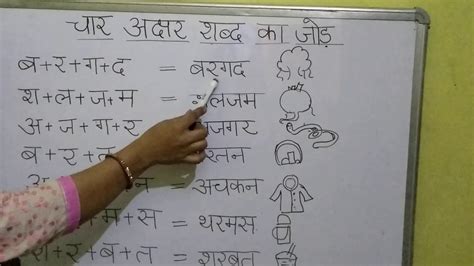 चार अक्षर शब्द का जोड़
ब+र+ग+द = बरगद
श+ल+ज+म = लजम
अ+ज+ग+र = जगर
ब+र+त = रतन
न = अचकन
म+स = थरमस
श+र+ब+त = शरबत